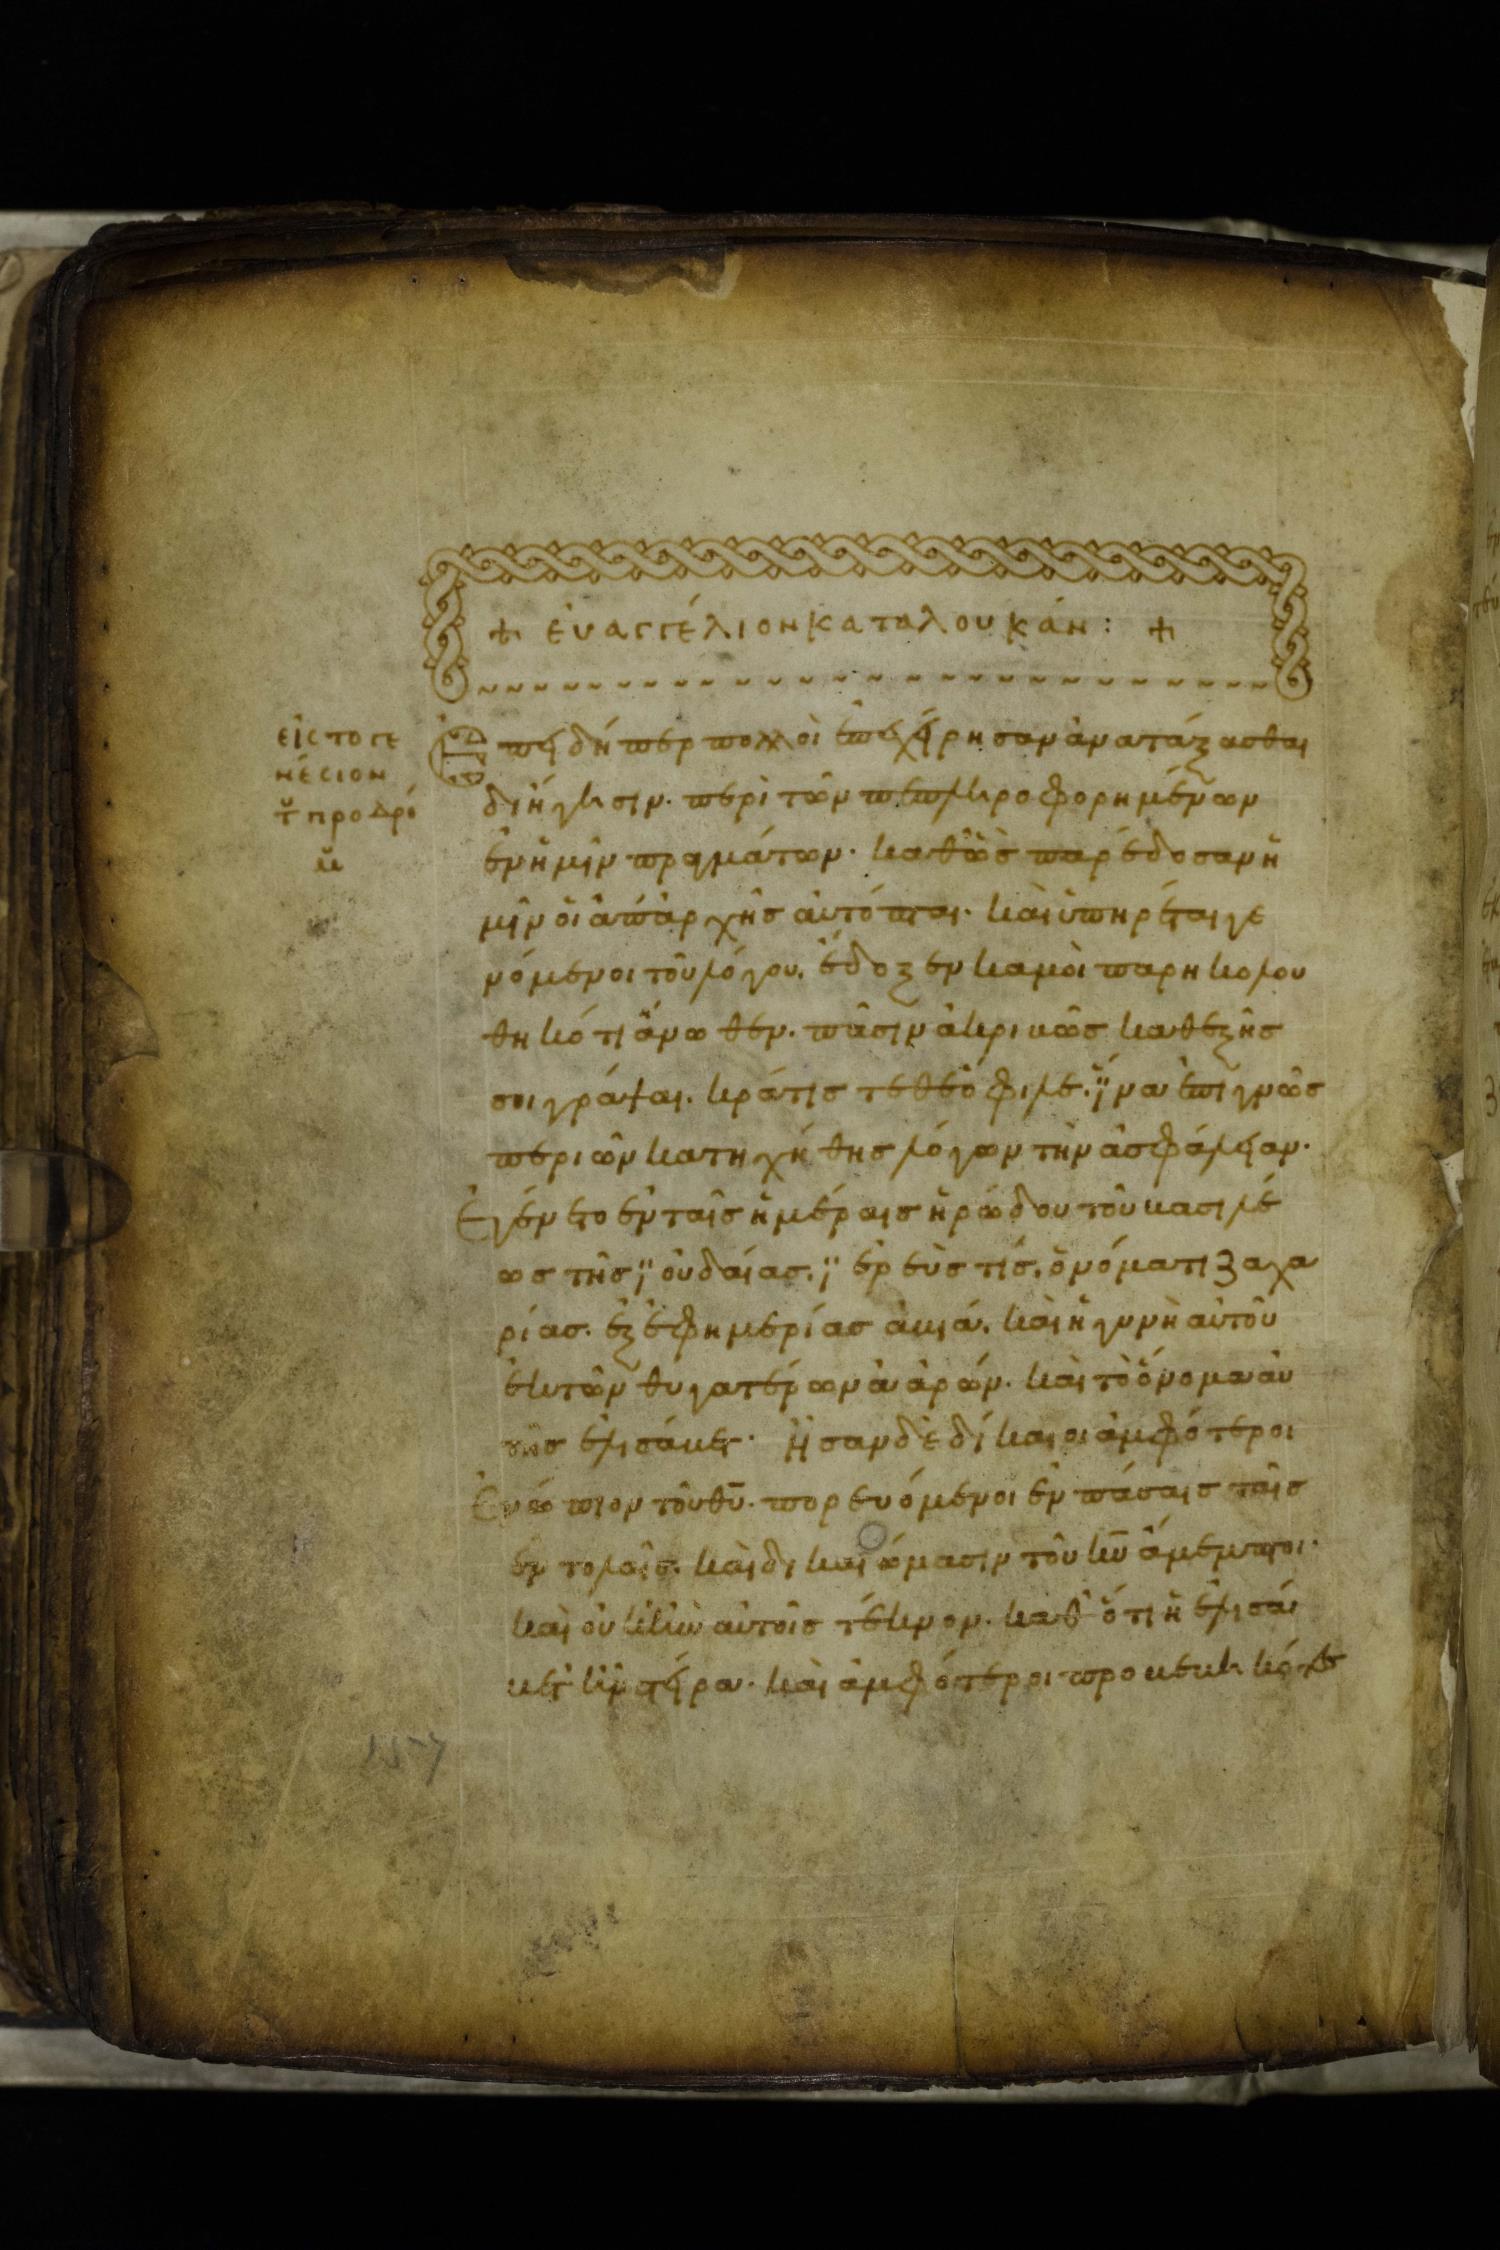 ☩ ἐυαγγέλιον κατα λουκάν : ☩
εἰς το γε
νέσιον
τ̆ προδρό
μ̆
Ἐπειδήπερ πολλοὶ ἐπεχείρησαν ἀνατάξασθαι
διήγησιν. περὶ τῶν πεπληροφορημένων
ἐν ἡμῖν πραγμάτων. καθὼς παρέδοσαν ἡ
μῖν ὁι ἀπ' ἀρχῆς ἀυτόπται. καὶ ὑπηρέται γε
νόμενοι τοῦ λόγου. ἔδοξεν καμοὶ παρηκολου
θηκότι ἄνωθεν. πᾶσιν ἀκριβῶς καθεξῆς
σοι γράψαι. κράτιστε θεόφιλε. ἵ̈να ἐπιγνῶς
περι ὧν κατηχήθης λόγων τὴν ἀσφάλειαν.
Ἐγένετο ἐν ταῖς ἡμέραις ἡρώδου τοῦ βασιλέ
ως τῆς ϊουδαίας. ϊερεὺς τίς. ὀνόματι ζαχα
ρίας. ἐξ ἐφημερίας ἀβιά. καὶ ἡ γυνὴ αὐτοῦ
ἐκ τῶν θυγατέρων ἀαρών. καὶ τὸ ὄνομα αὐ
τῆς ἐλισάβετ. Ἦσαν δὲ δίκαιοι ἀμφότεροι
Ἐνώπιον τοῦ θ̅υ̅. πορευόμενοι ἐν πάσαις ταῖς
ἐντολαῖς. καὶ δικαιώμασιν τοῦ κ̅υ̅ ἄμεμπτοι.
καὶ οὐκ ἦν αὐτοῖς τέκνον. καθ' ότι ἡ ἐλισά
βετ ἦν στείρα. καὶ ἀμφότεροι προβεβηκότες